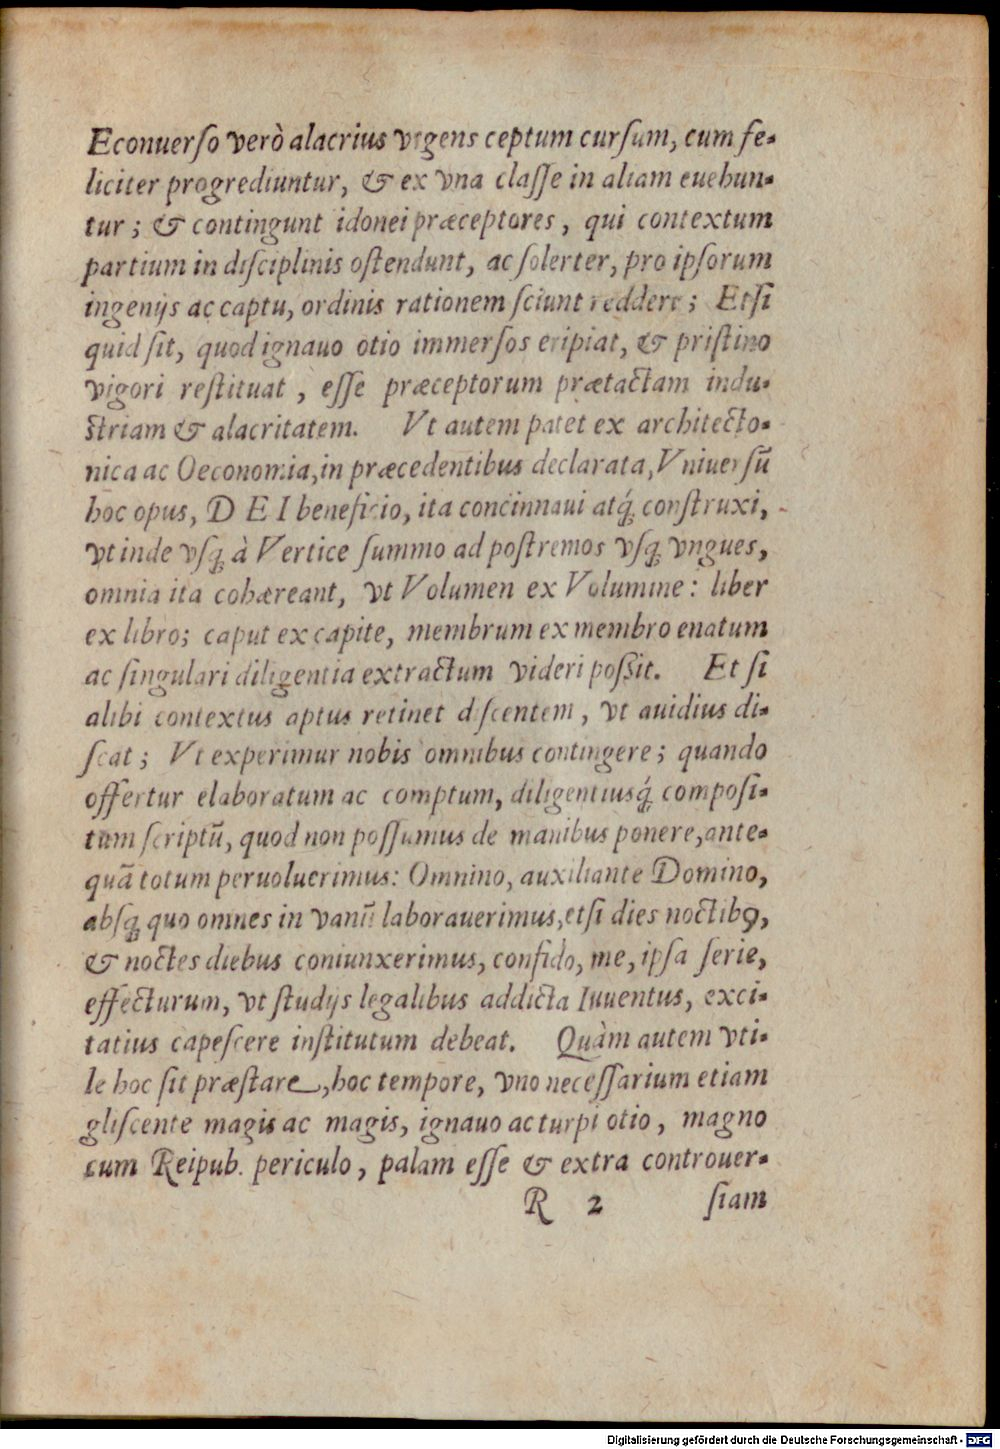 Econuerso verò alacrius vrgens ceptum cursum, cum fe-
liciter progrediuntur, & ex vna classe in aliam euehun-
tur; & contingunt idonei præceptores, qui contextum
partium in disciplinis ostendunt, ac solerter, pro ipsorum
ingenijs ac captu, ordinis rationem sciunt reddere; Etsi
quid sit, quod ignauo otio immersos eripiat, & pristino
vigori restituat, esse præceptorum prætactam indu-
striam & alacritatem. Vt autem patet ex architecto-
nica ac Oeconomia, in præcedentibus declarata, Vniuersũ
hoc opus, DEI beneficio, ita concinnaui atq́; construxi,
vt inde vsq; à Vertice summo ad postremos vsq; vngues,
omnia ita cohæreant, vt Volumen ex Volumine: liber
ex libro; caput ex capite, membrum ex membro enatum
ac singulari diligentia extractum videri possit. Et si
alibi contextus aptus retinet discentem, vt auidius di-
scat; Vt experimur nobis omnibus contingere; quando
offertur elaboratum ac comptum, diligentiusq́; composi-
tum scriptũ, quod non possumus de manibus ponere, ante-
quã totum peruoluerimus: Omnino, auxiliante Domino,
absq; quo omnes in vanũ laborauerimus, etsi dies noctibꝰ,
& noctes diebus coniunxerimus, confido, me, ipsa serie,
effecturum, vt studijs legalibus addicta Iuuentus, exci-
tatius capescere institutum debeat. Quàm autem vti-
le hoc sit præstare, hoc tempore, vno necessarium etiam
gliscente magis ac magis, ignauo ac turpi otio, magno
cum Reipub. periculo, palam esse & extra controuer-
R 2 siam
Digitalisierung gefördert durch die Deutsche Forschungsgemeinschaft - DFG